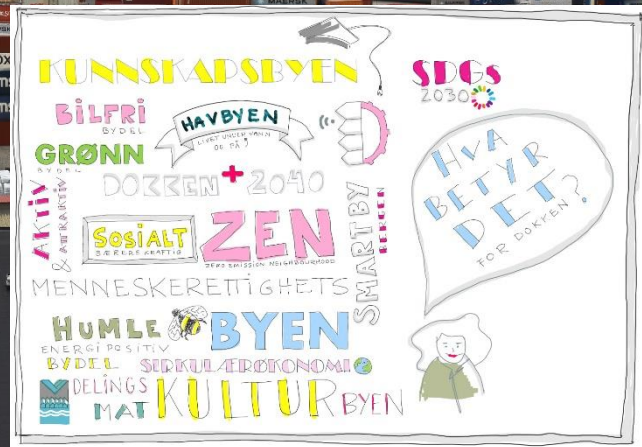 MAERSK
KUNNSKAPSBYEN
BiLFRi
BYDEL
HAVBYEN
LIVET UNDER VANN
OG PÅ
GRØNN
BYDEL
DOKKEN + 2040
AKTiV
& ATTRAKTiV
SOSiALT
BÆREKRAFTIG
ZEN
ZERO EMISSION NEIGHBOURHOOD
SMARTBY
BERGEN
MENNESKERETTIGHETS
HUMLE BYEN
ENERGI POSITIV
BYDEL
SIRKULÆRØKONOMI
DELINGS
MAT KULTUR BYEN
SDGs
2030
HVA
BETYR
DET?
FOR DOKKEN